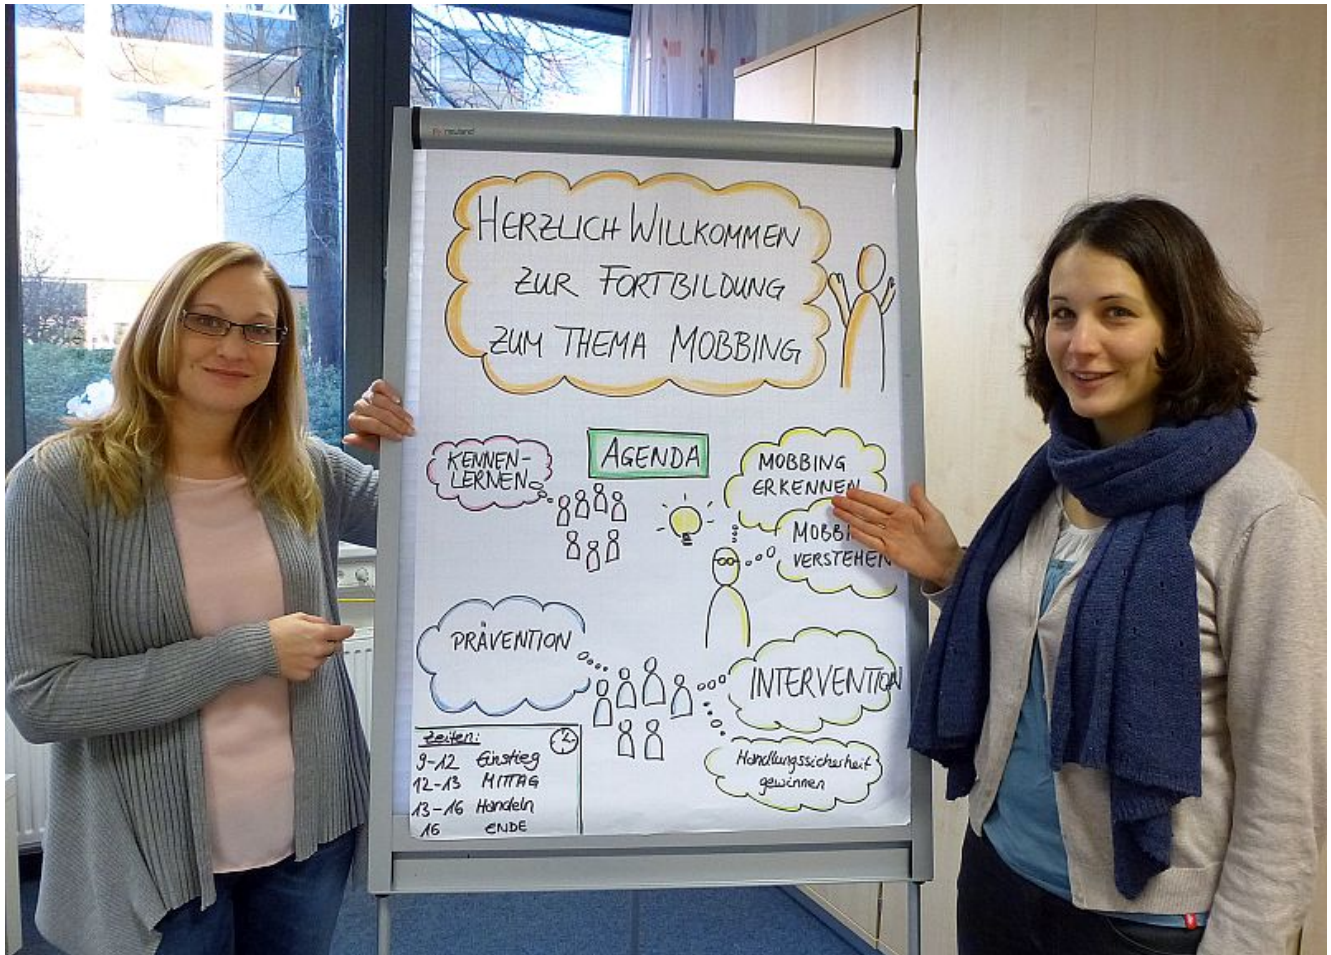 neuland
HERZLICH WILLKOMMEN
ZUR FORTBILDUNG
ZUM THEMA MOBBING
AGENDA
KENNEN-
LERNEN
MOBBING
ERKENNEN
MOBBI
VERSTEHEN
PRÄVENTION
INTERVENTION
Handlungssicherheit
gewinnen
Zeiten:
9-12 Einstieg
12-13 MITTAG
13-16 Handeln
16 ENDE